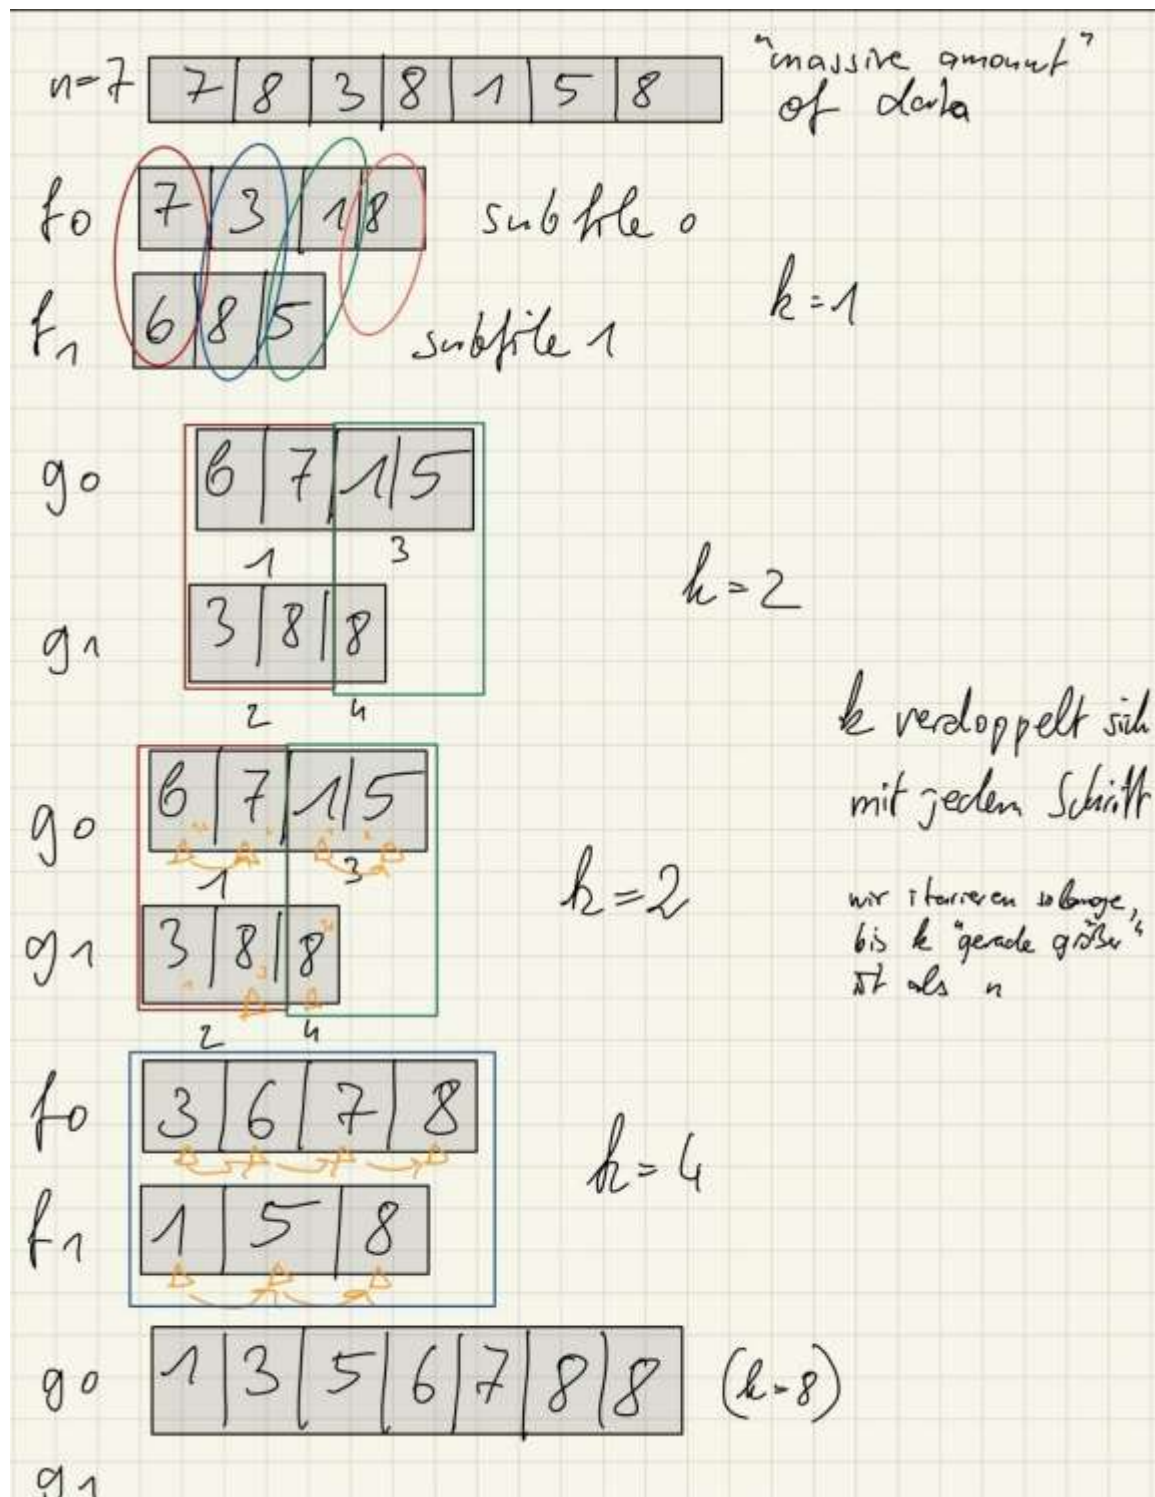 n=7 7 8 3 8 1 5 8
"massive amount"
of data
f0 7 3 1 8 subfile 0
f1 6 8 5 subfile 1
k=1
g0 6 7 1 5
1 3
g1 3 8 8
2 4
k=2
g0 6 7 1 5
1 3
g1 3 8 8
2 4
k=2
k verdoppelt sich
mit jedem Schritt
wir iterieren solange,
bis k "gerade größer"
ist als n
f0 3 6 7 8
f1 1 5 8
k=4
g0 1 3 5 6 7 8 8 (k=8)
g1